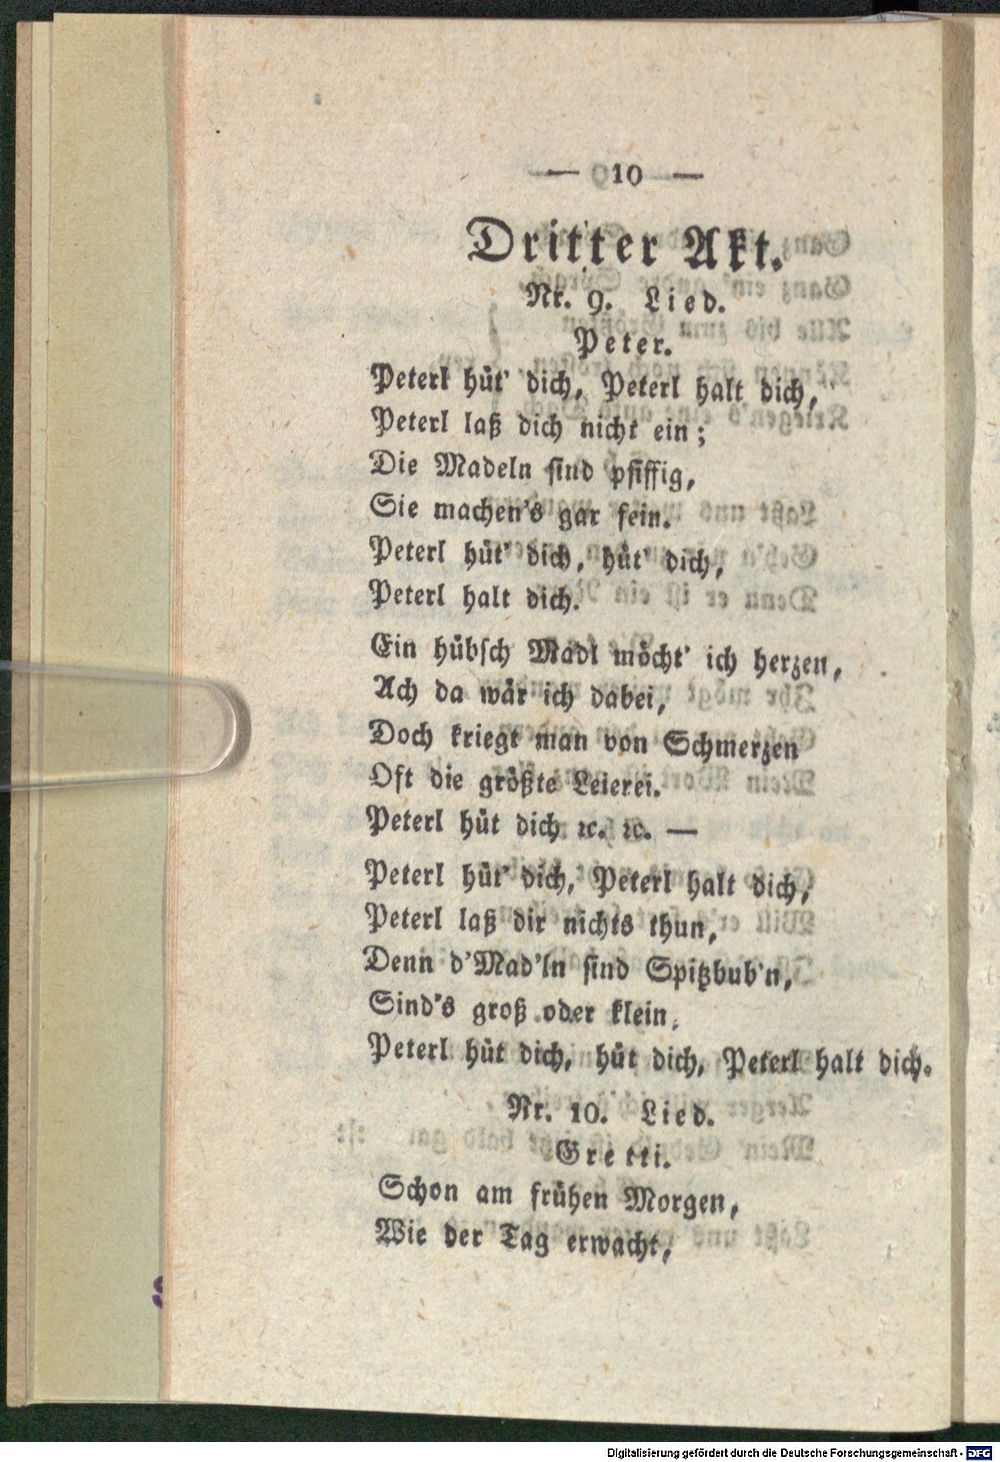 — 10 —
Dritter Akt.
Nr. 9. Lied.
Peter.
Peterl hüt' dich, Peterl halt dich,
Peterl laß dich nicht ein;
Die Madeln sind pfiffig,
Sie machen's gar fein.
Peterl hüt' dich, hüt' dich,
Peterl halt dich.
Ein hübsch Madl möcht' ich herzen,
Ach da wär ich dabei,
Doch kriegt man von Schmerzen
Oft die größte Leierei.
Peterl hüt dich ꝛc. ꝛc. —
Peterl hüt' dich, Peterl halt dich,
Peterl laß dir nichts thun,
Denn d'Mad'ln sind Spitzbub'n,
Sind's groß oder klein,
Peterl hüt dich, hüt dich, Peterl halt dich.
Nr. 10. Lied.
Gretti.
Schon am frühen Morgen,
Wie der Tag erwacht,
Digitalisierung gefördert durch die Deutsche Forschungsgemeinschaft - DFG